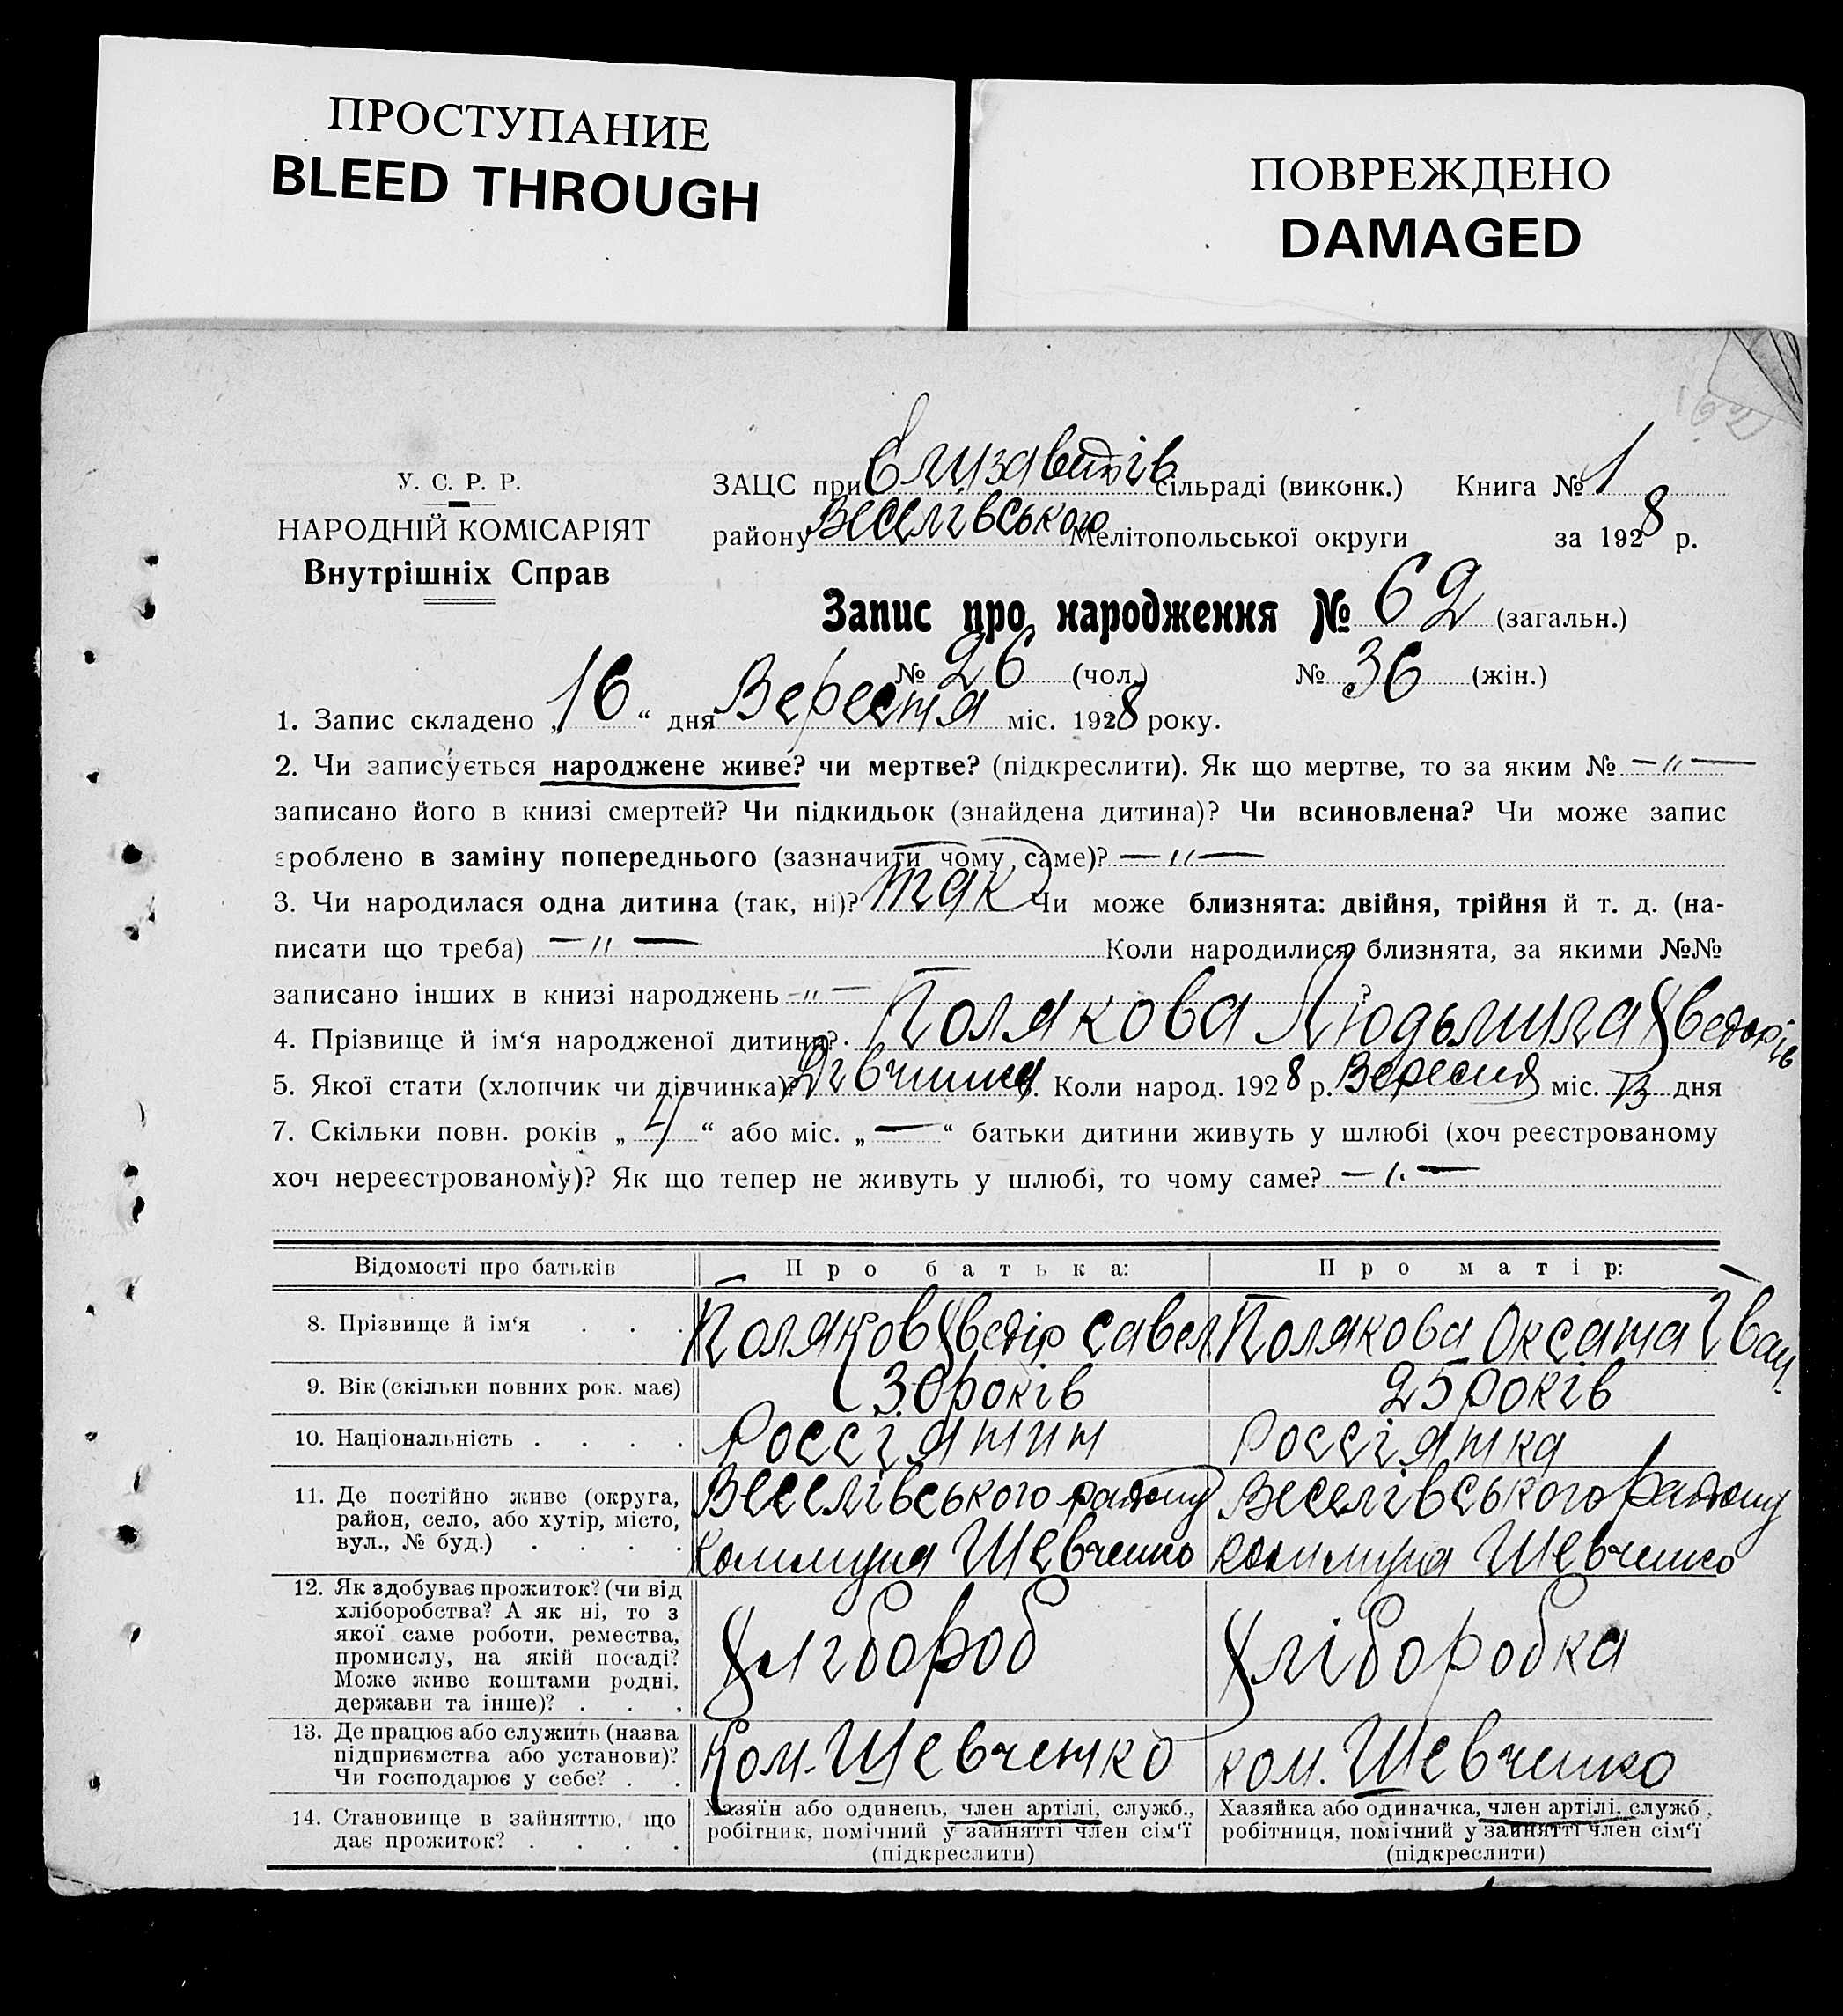 ПРОСТУПАНИЕ
BLEED THROUGH
ПОВРЕЖДЕНО
DAMAGED
У. С. Р. Р.
НАРОДНІЙ КОМІСАРІЯТ
Внутрішніх Справ
ЗАЦС при Єлизаветів сільраді (виконк.) Книга № 1
району Веселівського Мелітопольської округи за 1928 р.
Запис про народження № 62 (загальн.)
№ 26 (чол.) № 36 (жін.)
1. Запис складено „16“ дня Вересня міс. 1928 року.
2. Чи записується народжене живе? чи мертве? (підкреслити). Як що мертве, то за яким № —〃—
записано його в книзі смертей? Чи підкидьок (знайдена дитина)? Чи всиновлена? Чи може запис
зроблено в заміну попереднього (зазначити чому саме)? —〃—
3. Чи народилася одна дитина (так, ні)? так Чи може близнята: двійня, трійня й т. д. (на-
писати що треба) —〃— Коли народилися близнята, за якими №№
записано інших в книзі народжень —〃— ?
4. Прізвище й ім‘я народженої дитини? Полякова Людьмила Хведорів
5. Якої стати (хлопчик чи дівчинка)? Дівчинка. Коли народ. 1928 р. Вересня міс. 13 дня
7. Скільки повн. років „4“ або міс. „—“ батьки дитини живуть у шлюбі (хоч реєстрованому
хоч нереєстрованому)? Як що тепер не живуть у шлюбі, то чому саме? —〃—
Відомості про батьків Про батька: Про матір:
8. Прізвище й ім‘я . . . Поляков Хведір Савел Полякова Оксана Іван.
9. Вік (скільки повних рок. має) 30 років 25 років
10. Національність . . . . Россіянин Россіянка
11. Де постійно живе (округа,
район, село, або хутір, місто,
вул., № буд.) . . . .
Веселівського району
коммуна Шевченко
Веселівського району
коммуна Шевченко
12. Як здобуває прожиток? (чи від
хліборобства? А як ні, то з
якої саме роботи, ремества,
промислу, на якій посаді?
Може живе коштами родні,
держави та інше)? . . .
Хлібороб
Хліборобка
13. Де працює або служить (назва
підприємства або установи)?
Чи господарює у себе? . .
Ком. Шевченко
ком. Шевченко
14. Становище в зайняттю, що
дає прожиток? . . . .
Хазяїн або одинець, член артілі, служб.,
робітник, помічний у зайнятті член сім‘ї
(підкреслити)
Хазяйка або одиначка, член артілі, служб.,
робітниця, помічний у зайнятті член сім‘ї
(підкреслити)